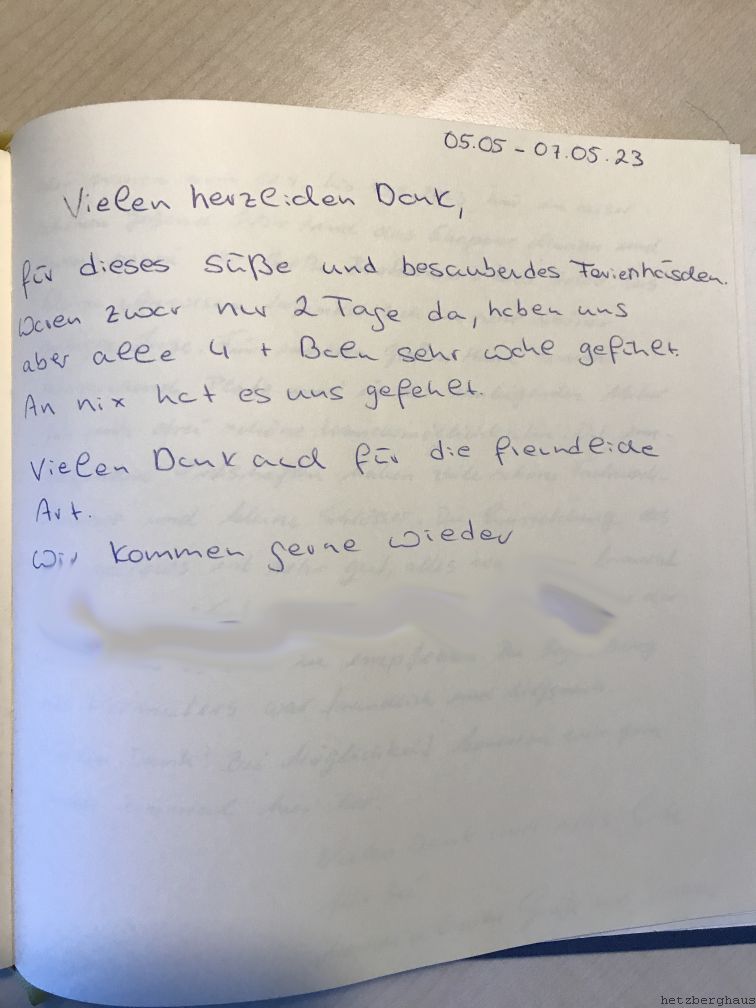 05.05 - 07.05.23
Vielen herzlichen Dank,
für dieses süße und besauberdes Ferienhäischen.
Waren zwar nur 2 Tage da, haben uns
aber alle 4 + sehr wohl gefühlt.
An nix hat es uns gefehlt.
Vielen Dank auch für die freundliche
Art.
Wir kommen gerne wieder
hetzberghaus